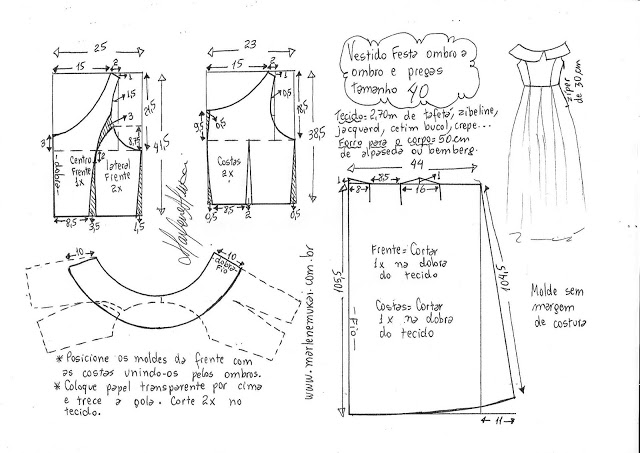 Vestido Festa ombro a
ombro e pregas
tamanho 40
Tecido= 2,70m de tafetá, zibeline,
jacquard, cetim bucol, crepe...
Forro para o corpo= 50cm
de alpaseda ou bemberg.
zíper
de 30cm
25
15
2
1
1,5
3
21,5
41,5
8,75
3
2
dobra
Centro
Frente
1x
lateral
Frente
2x
8,5
3,5
1,5
23
15
2
1
0,5
9,5
0,5
38,5
Costas
2x
0,5
8,5
2
0,5
Marlene Mukai
www.marlenemukai.com.br
10
10
dobra
Fio
* Posicione os moldes da frente com
as costas unindo-os pelos ombros.
* Coloque papel transparente por cima
e trece a gola. Corte 2x no
tecido.
44
1
8
8,5
16
1
106,5
104,5
Frente= Cortar
1x na dobra
do tecido
Costas= Cortar
1x na dobra
do tecido
Fio
11
Molde sem
margem
de costura